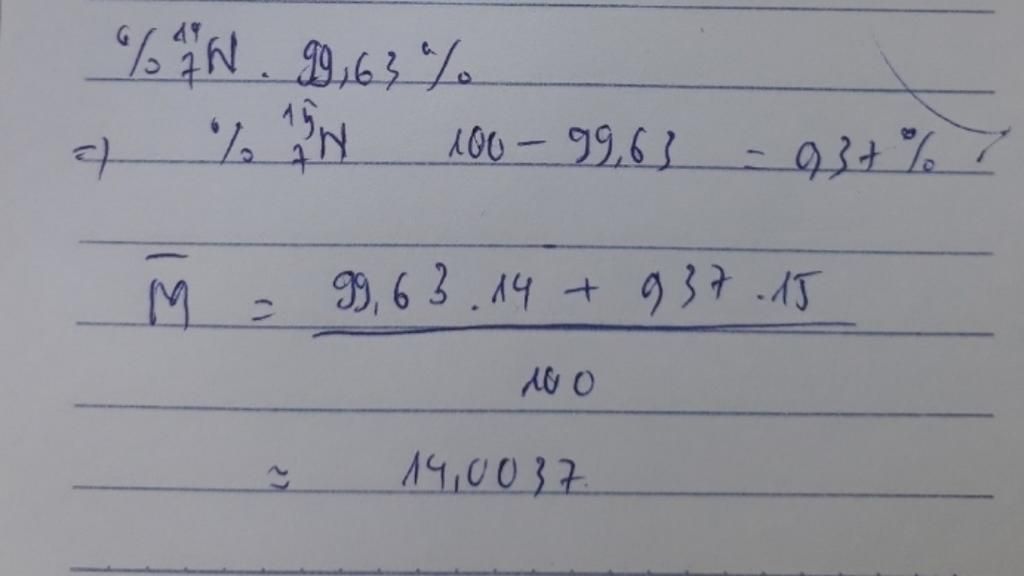 % ¹⁴₇N . 99,63 %
=) % ¹⁵₇N 100 - 99,63 = 0,37 %
M̅ = (99,63 . 14 + 0,37 . 15) / 100
≈ 14,0037